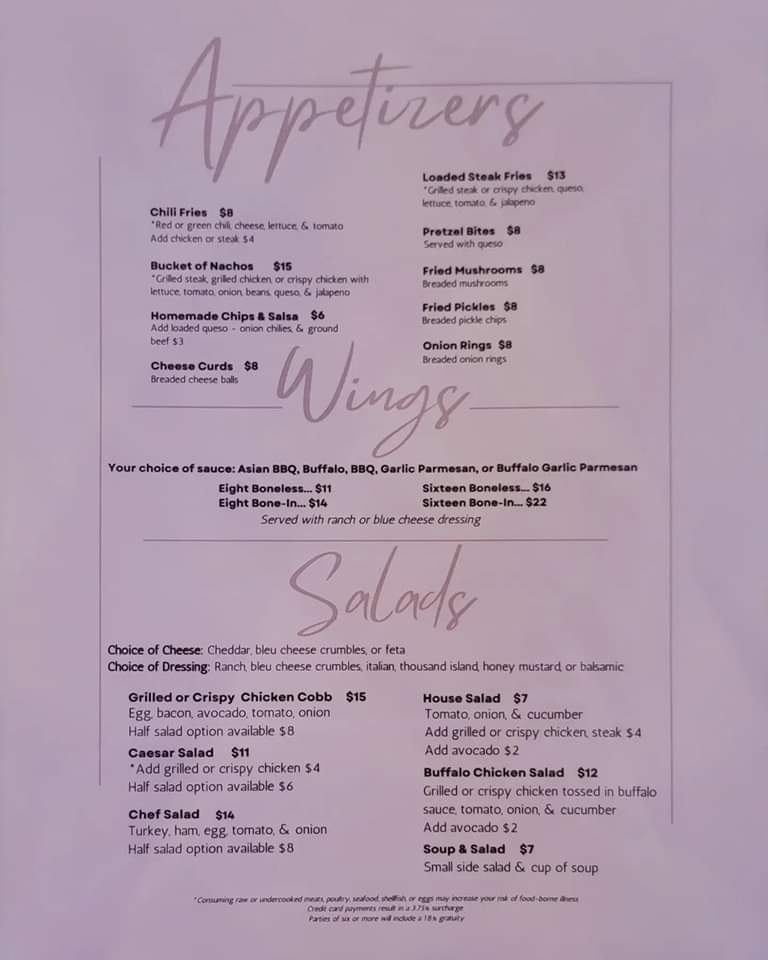 Appetizers
Chili Fries $8
*Red or green chili, cheese, lettuce, & tomato
Add chicken or steak $4
Bucket of Nachos $15
*Grilled steak, grilled chicken, or crispy chicken with
lettuce, tomato, onion, beans, queso, & jalapeno
Homemade Chips & Salsa $6
Add loaded queso - onion chilies, & ground
beef $3
Cheese Curds $8
Breaded cheese balls
Loaded Steak Fries $13
*Grilled steak or crispy chicken, queso,
lettuce, tomato, & jalapeno
Pretzel Bites $8
Served with queso
Fried Mushrooms $8
Breaded mushrooms
Fried Pickles $8
Breaded pickle chips
Onion Rings $8
Breaded onion rings
Wings
Your choice of sauce: Asian BBQ, Buffalo, BBQ, Garlic Parmesan, or Buffalo Garlic Parmesan
Eight Boneless... $11
Eight Bone-In... $14
Sixteen Boneless... $16
Sixteen Bone-In... $22
Served with ranch or blue cheese dressing
Salads
Choice of Cheese: Cheddar, bleu cheese crumbles, or feta
Choice of Dressing: Ranch, bleu cheese crumbles, italian, thousand island, honey mustard, or balsamic
Grilled or Crispy Chicken Cobb $15
Egg, bacon, avocado, tomato, onion
Half salad option available $8
Caesar Salad $11
*Add grilled or crispy chicken $4
Half salad option available $6
Chef Salad $14
Turkey, ham, egg, tomato, & onion
Half salad option available $8
House Salad $7
Tomato, onion, & cucumber
Add grilled or crispy chicken, steak $4
Add avocado $2
Buffalo Chicken Salad $12
Grilled or crispy chicken tossed in buffalo
sauce, tomato, onion, & cucumber
Add avocado $2
Soup & Salad $7
Small side salad & cup of soup
*Consuming raw or undercooked meats, poultry, seafood, shellfish, or eggs may increase your risk of food-borne illness
Credit card payments result in a 3.75% surcharge
Parties of six or more will include a 18% gratuity